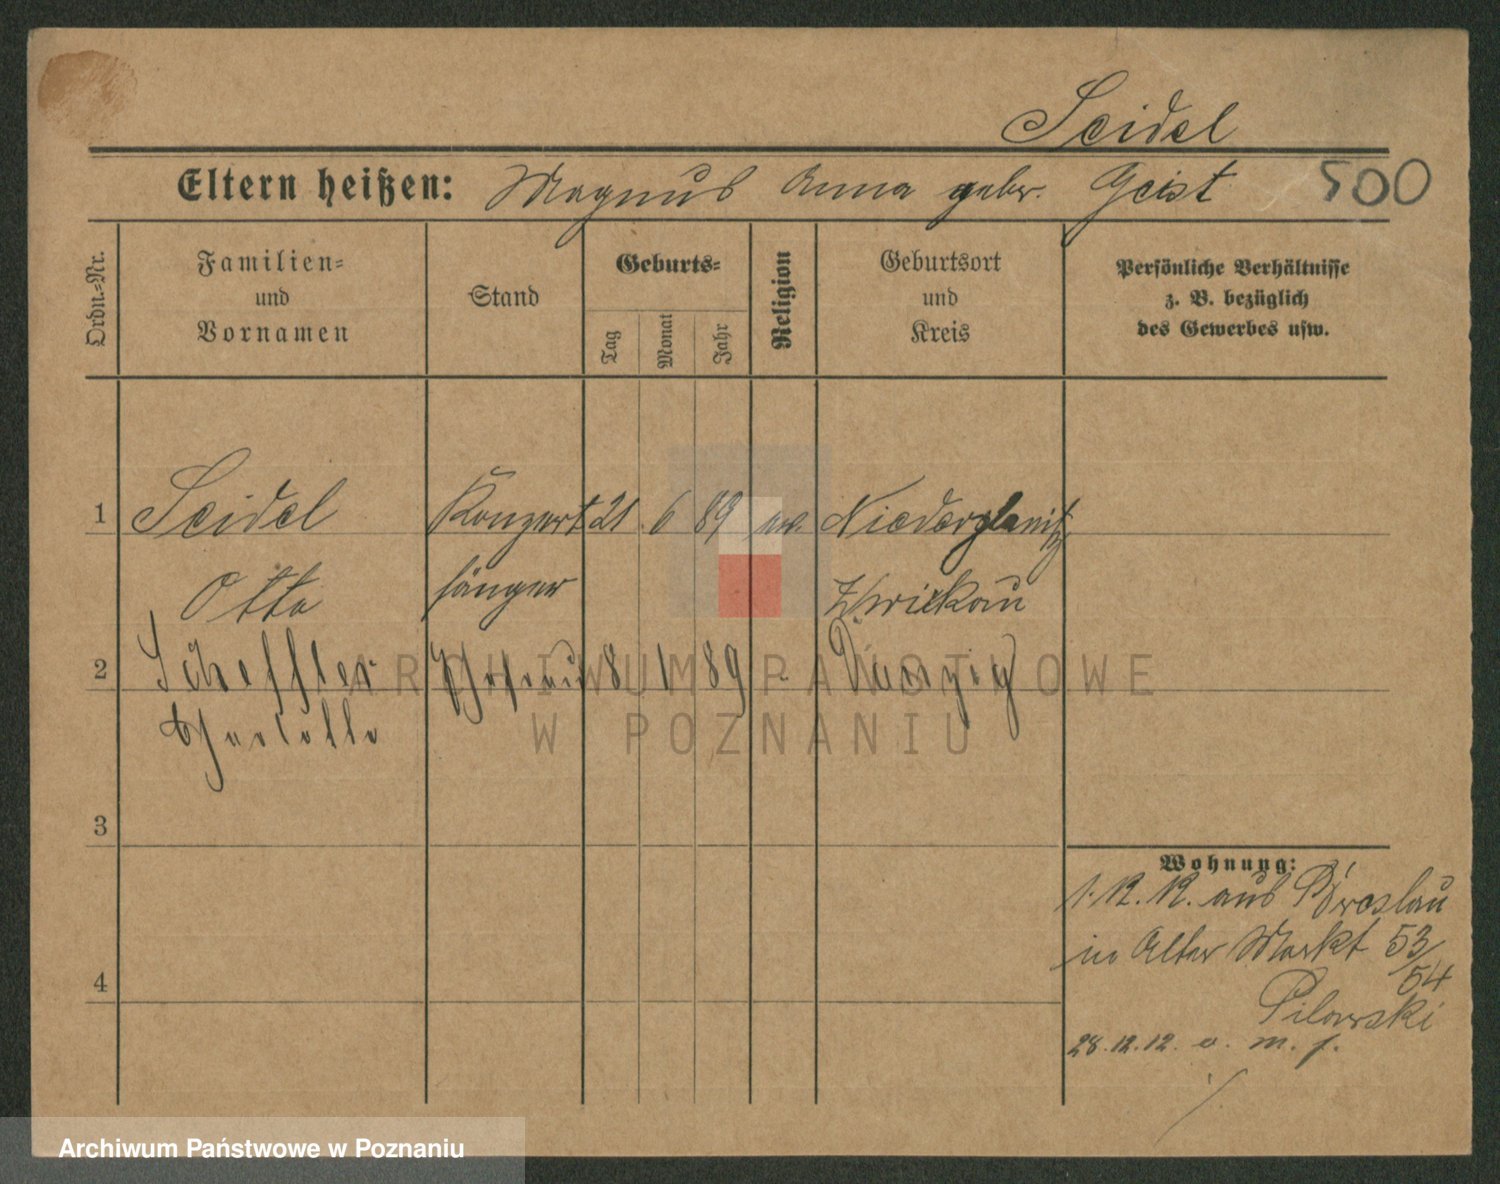 Seidel
Eltern heißen: Magnus Anna gebr. Geist 500
Ordn.-Nr.
Familien-
und
Vornamen
Stand
Geburts-
Tag
Monat
Jahr
Religion
Geburtsort
und
Kreis
Persönliche Verhältnisse
z. B. bezüglich
des Gewerbes usw.
1 Seidel Konzert 21 6 89 ev. Niederplanitz
Otto sänger Zwickau
2 Scheffler 8 1 89 - Danzig
3
4
Wohnung:
1.12.12. aus Breslau
in Alter Markt 53/
54
Pilawski
28.12.12. v. m. f.
ARCHIWUM PAŃSTWOWE
W POZNANIU
Archiwum Państwowe w Poznaniu